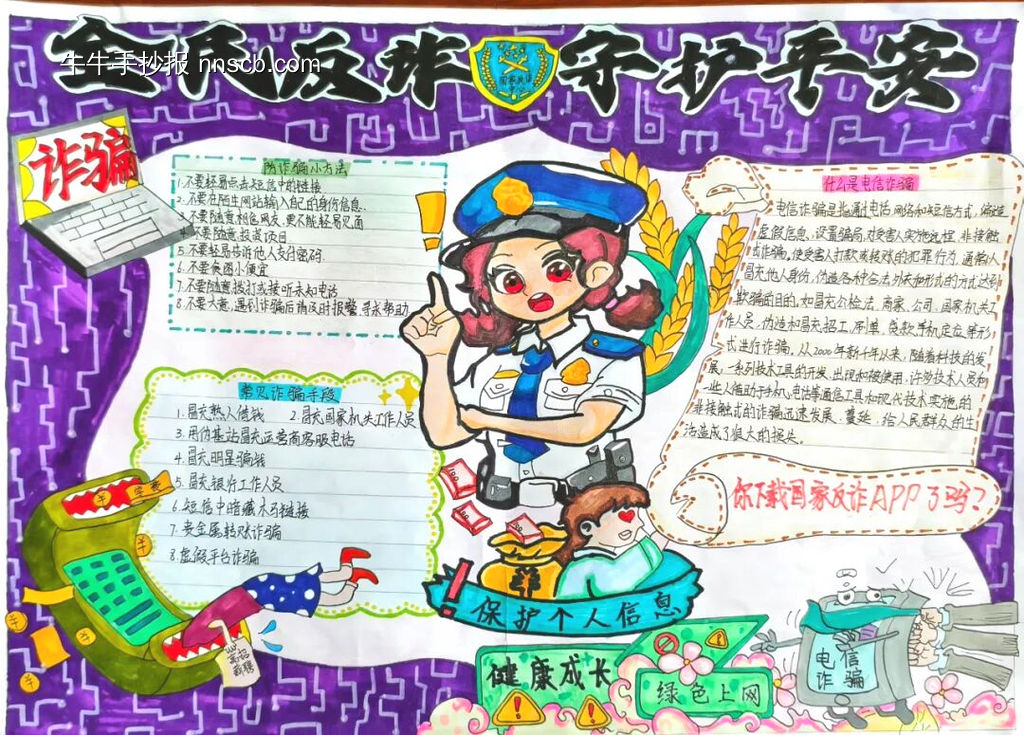 全民反诈 守护平安
牛牛手抄报 nnscb.com
国家反诈
诈骗
防诈骗小方法
1.不要轻易点击短信中的链接
2.不要在陌生网站输入自己的身份信息.
3.不要随意相信网友,更不能轻易见面
4.不要随意投资项目
5.不要轻易告诉他人支付密码.
6.不要贪图小便宜
7.不要随意拨打或接听未知电话
8.不要大意,遇到诈骗后请及时报警,寻求帮助
常见诈骗手段
1.冒充熟人借钱 2.冒充国家机关工作人员
3.用伪基站冒充运营商客服电话
4.冒充明星骗钱
5.冒充银行工作人员
6.短信中暗藏木马链接
7.贵金属转账诈骗
8.虚假平台诈骗
什么是电信诈骗
电信诈骗是指通过电话、网络和短信方式,编造
虚假信息、设置骗局,对受害人实施远程、非接触
式诈骗,使受害人打款或转账的犯罪行为,通常以
冒充他人身份,伪造各种合法外衣和形式的方式达到
欺骗的目的,如冒充公检法、商家、公司、国家机关工
作人员,伪造和冒充招工、刷单、贷款、手机定位等形
式进行诈骗。从2000年新千年以来,随着科技的发
展,一系列技术工具的开发、出现和被使用,许多技术人员和
一些人借助于手机、电话等通信工具和现代技术实施的
非接触式的诈骗迅速发展、蔓延,给人民群众的生
活造成了很大的损失。
你下载国家反诈APP了吗?
保护个人信息
高招
健康成长
绿色上网
电信
诈骗